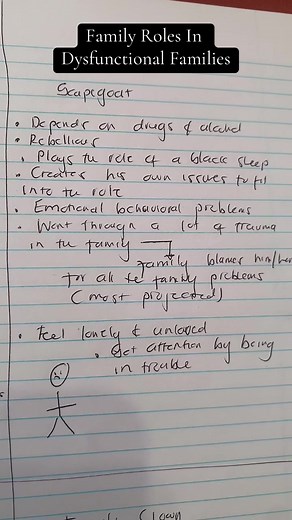 Family Roles In
Dysfunctional Families
Scapegoat
• Depends on drugs & alcohol
• Rebellious
• Plays the role of a black sheep
• Creates his own issues to fit
into the role
• Emotional behavioral problems
• Went through a lot of trauma
in the family
family blames him/her
for all the family problems
(most projected)
• Feel lonely & unloved
• Get attention by being
in trouble
Clown